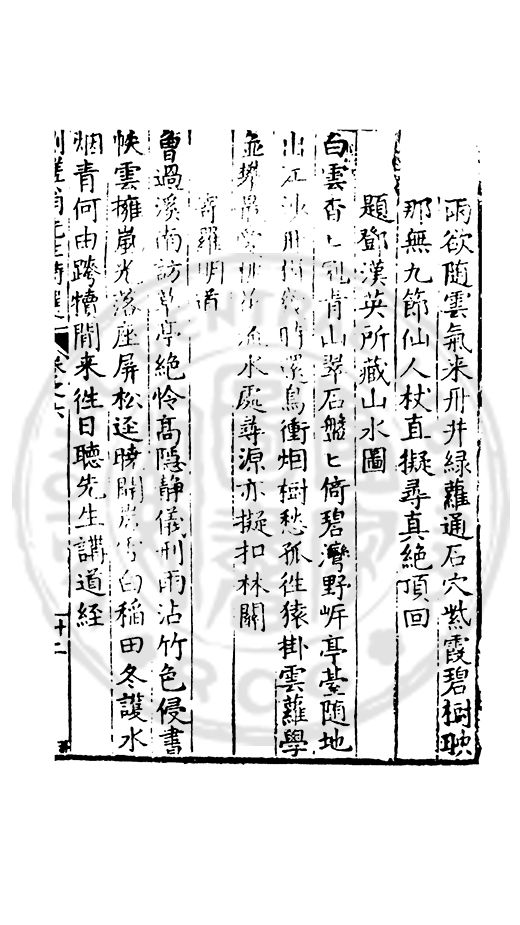 雨欲随雲氣来丹井緑蘿通石穴紫霞碧樹映
那無九節仙人杖直擬尋真絶頂回
題鄧漢英所藏山水圖
白雲杳〻乱青山翠石盤〻倚碧灣野岸亭䑓随地
出江冰舟時溪鳥衝烟樹愁孤徃猿掛雲蘿學
並攀流水處尋源亦擬扣林關
寄羅明
曽過溪南訪草亭絶怜髙隠静儀刑雨沾竹色侵書
帙雲擁嵐光落座屏松逕曉開雪白稲田冬護水
烟青何由跨犢閒来徃日聴先生講道経
卷之六
十二